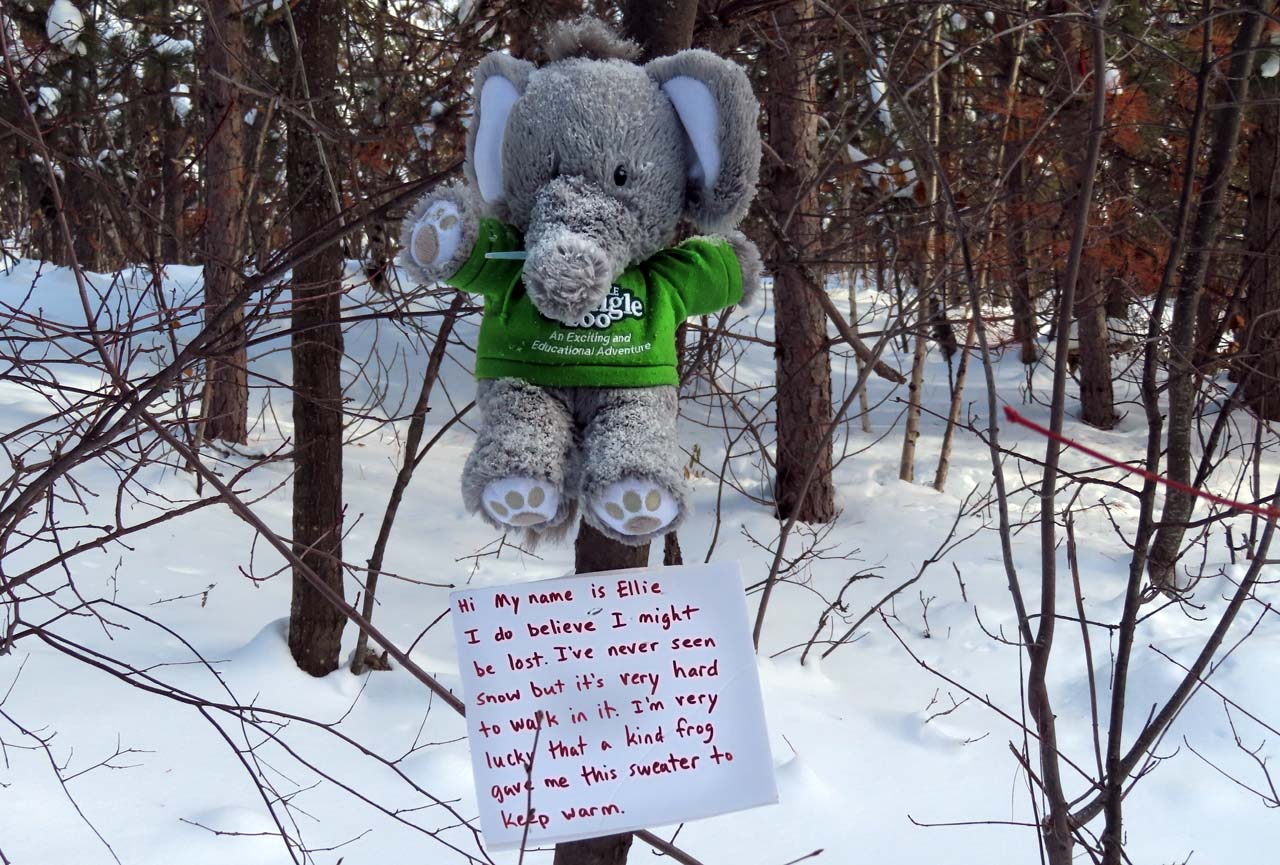 An Exciting and
Educational Adventure
Hi My name is Ellie
I do believe I might
be lost. I've never seen
snow but it's very hard
to walk in it. I'm very
lucky that a kind frog
gave me this sweater to
keep warm.